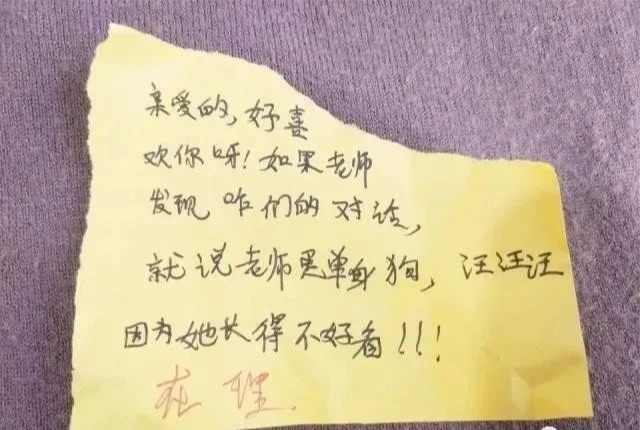 亲爱的,好喜
欢你呀!如果老师
发现咱们的对话,
就说老师是单身狗,汪汪汪
因为她长得不好看!!!
在理